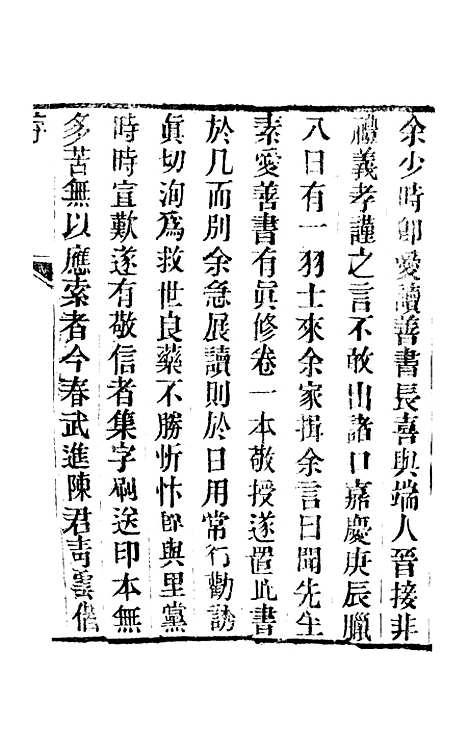 余少時即愛讀善書長喜與端人晉接非
禮義孝謹之言不敢出諸口嘉慶庚辰臘
八日有一羽士來余家揖余言曰聞先生
素愛善書有眞修卷一本敬授遂置此書
於几而別余急展讀則於日用常行勸誘
眞切洵爲救世良藥不勝忻忭即與里黨
時時宣歎遂有敬信者集字刷送印本無
多苦無以應索者今春武進陳君青雲偕
序